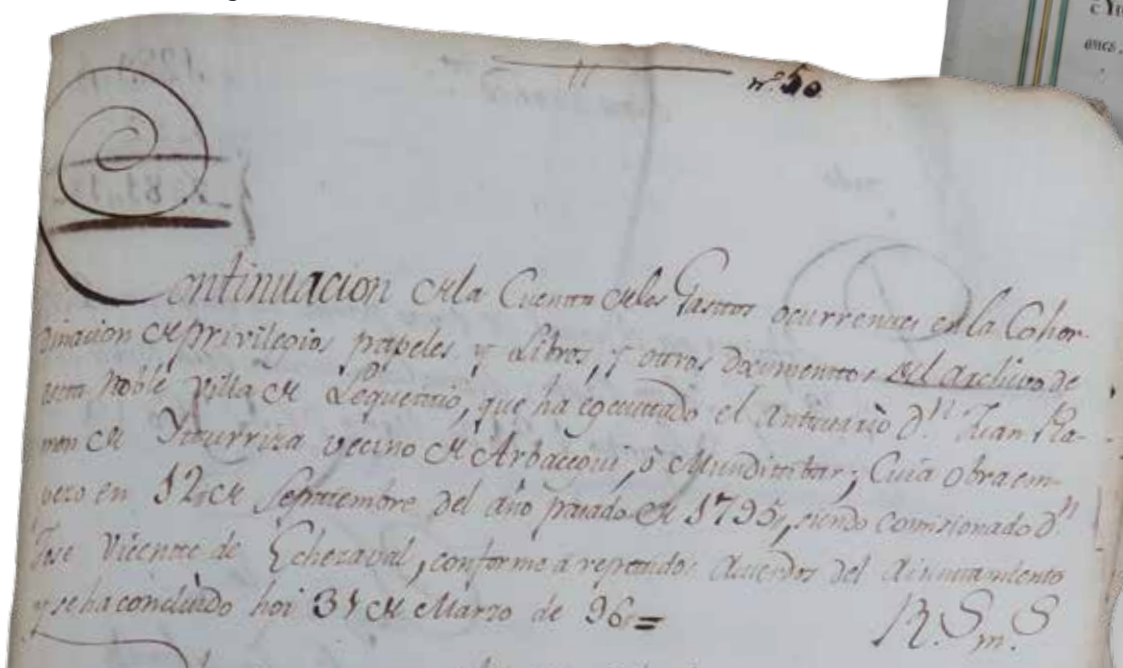 nº. 50.
Continuacion de la Cuenta de los Gastos ocurrentes en la Cohor-
dinacion de privilegios, papeles y Libros, y otros Documentos del Archivo de
esta Noble Villa de Lequeitio, que ha egecutado el Anticuario Dn. Juan Ra-
mon de Yturriza vecino de Arbacegui, ó Munditibar; Cuia obra em-
pezo en 12, de Septiembre del año pasado de 1795, siendo comisionado Dn
Jose Vicente de Echezaval, conforme á repetidos Acuerdos del Aiuntamiento
y se ha concluido hoi 31 de Marzo de 96=
R.S m. S
ones,